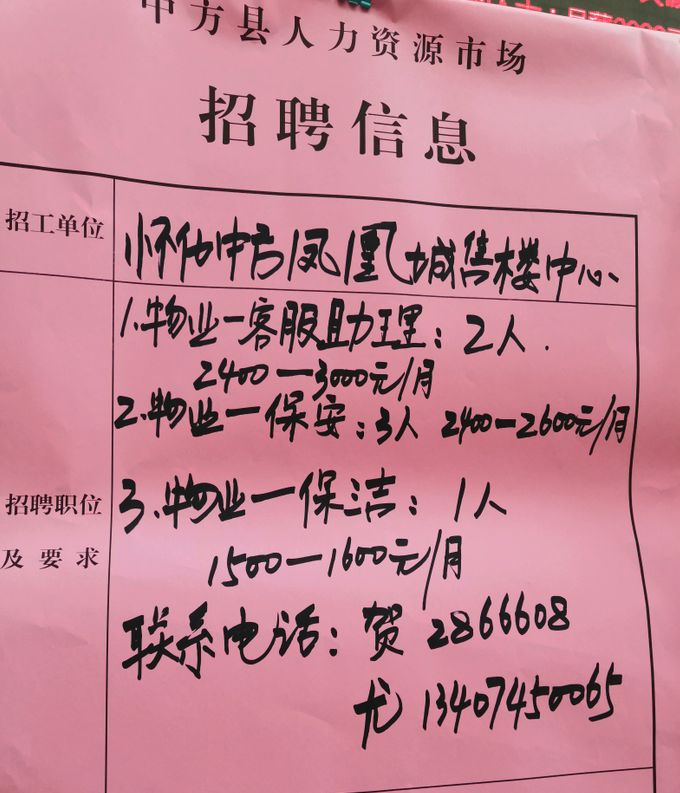 中方县人力资源市场
招聘信息
招工单位
怀化中方凤凰城售楼中心
招聘职位
及要求
1.物业一客服助理:2人.
2400—3000元/月
2.物业一保安:3人 2400—2600元/月
3.物业一保洁:1人
1500—1600元/月
联系电话:贺 2866608
尤 13407450065